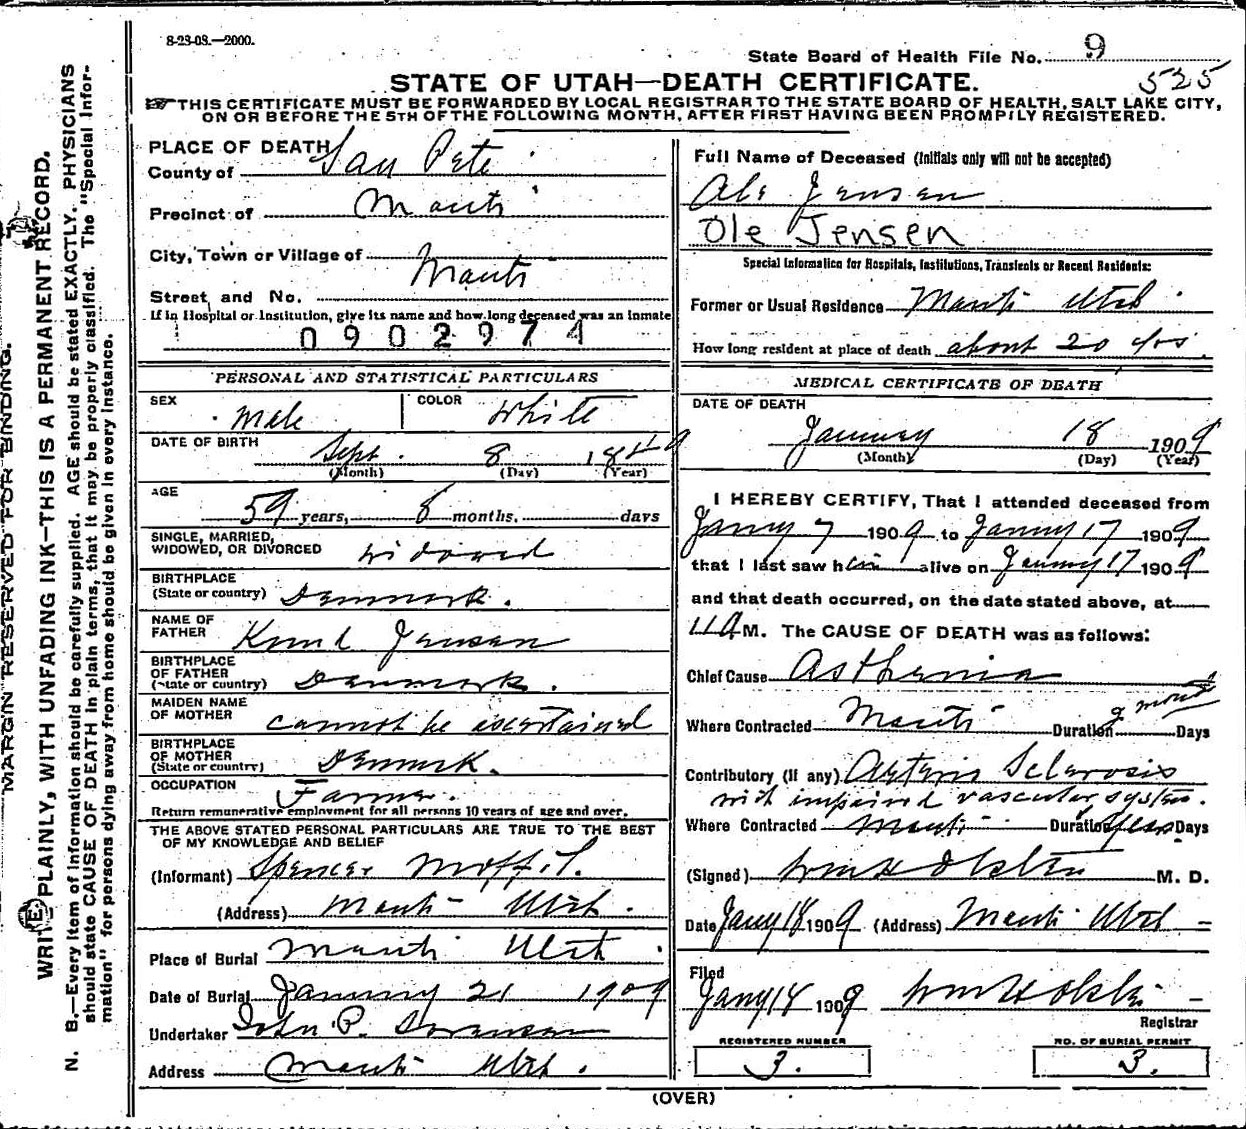 8-23-08.—2000.
State Board of Health File No. 9
525
STATE OF UTAH—DEATH CERTIFICATE.
THIS CERTIFICATE MUST BE FORWARDED BY LOCAL REGISTRAR TO THE STATE BOARD OF HEALTH, SALT LAKE CITY,
ON OR BEFORE THE 5TH OF THE FOLLOWING MONTH, AFTER FIRST HAVING BEEN PROMPTLY REGISTERED.
PLACE OF DEATH
County of San Pete
Precinct of Manti
City, Town or Village of Manti
Street and No.
If in Hospital or Institution, give its name and how long deceased was an inmate
0902974
PERSONAL AND STATISTICAL PARTICULARS
SEX Male COLOR White
DATE OF BIRTH Sept. 8 1849
(Month) (Day) (Year)
AGE
59 years, 8 months, days
SINGLE, MARRIED,
WIDOWED, OR DIVORCED widowed
BIRTHPLACE
(State or country) Denmark.
NAME OF
FATHER Knud Jensen
BIRTHPLACE
OF FATHER
(State or country) Denmark.
MAIDEN NAME
OF MOTHER cannot be ascertained
BIRTHPLACE
OF MOTHER
(State or country) Denmark.
OCCUPATION Farmer.
Return remunerative employment for all persons 10 years of age and over.
THE ABOVE STATED PERSONAL PARTICULARS ARE TRUE TO THE BEST
OF MY KNOWLEDGE AND BELIEF
(Informant) Spencer
(Address) Manti Utah.
Place of Burial Manti Utah.
Date of Burial January 21 1909
Undertaker John P. Sorensen
Address Manti Utah.
Full Name of Deceased (Initials only will not be accepted)
Ole Jensen
Ole Jensen
Special Information for Hospitals, Institutions, Transients or Recent Residents:
Former or Usual Residence Manti Utah.
How long resident at place of death about 20 yrs.
MEDICAL CERTIFICATE OF DEATH
DATE OF DEATH
January 18 1909
(Month) (Day) (Year)
I HEREBY CERTIFY, That I attended deceased from
Janny 7 1909 to Janny 17 1909
that I last saw him alive on January 17 1909
and that death occurred, on the date stated above, at
11 A M. The CAUSE OF DEATH was as follows:
Chief Cause Asthenia
Where Contracted Manti Duration 9 months Days
Contributory (if any) Arterio Sclerosis
with impaired vascular system.
Where Contracted Manti Duration years Days
(Signed) M. D.
Date Jany 18 1909 (Address) Manti Utah
Filed
Jany 18 1909
Registrar
REGISTERED NUMBER
3.
NO. OF BURIAL PERMIT
3.
(OVER)
MARGIN RESERVED FOR BINDING.
WRITE PLAINLY, WITH UNFADING INK—THIS IS A PERMANENT RECORD.
N. B.—Every item of information should be carefully supplied. AGE should be stated EXACTLY. PHYSICIANS
should state CAUSE OF DEATH in plain terms, that it may be properly classified. The "Special Infor-
mation" for persons dying away from home should be given in every instance.